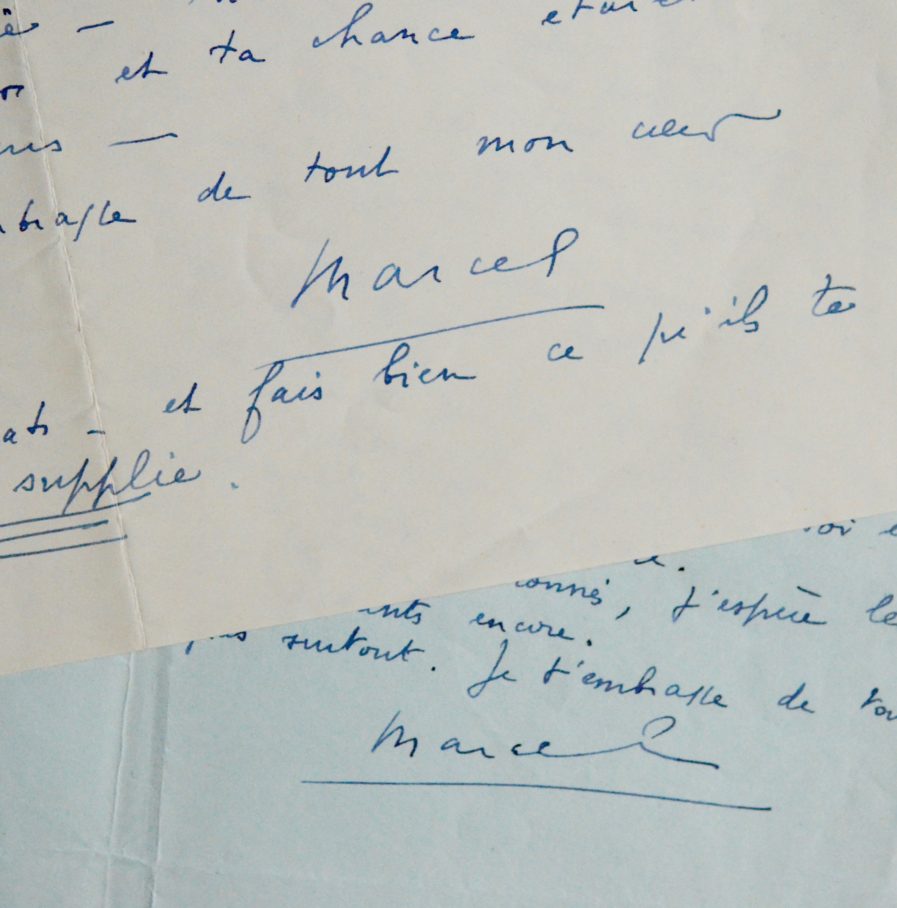 et ta chance
—
de tout mon cœur
Marcel
et fais bien ce qu'ils te
supplie.
onnés, j'espère le
encore.
surtout. Je t'embrasse de
Marcel